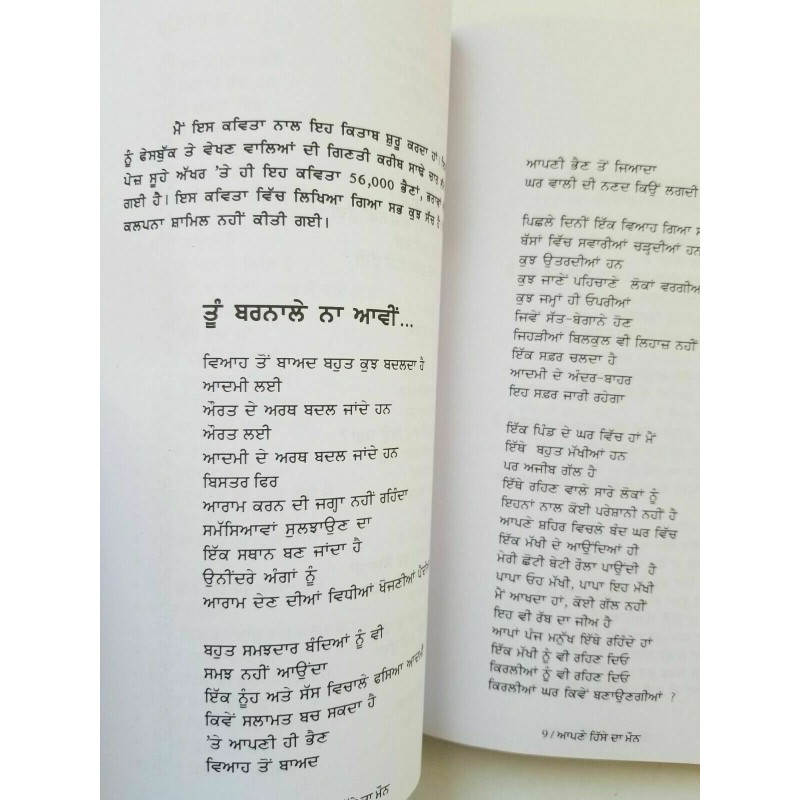 ਮੈਂ ਇਸ ਕਵਿਤਾ ਨਾਲ ਇਹ ਕਿਤਾਬ ਸ਼ੁਰੂ ਕਰਦਾ ਹਾਂ।
ਨੂੰ ਫੇਸਬੁੱਕ ਤੇ ਵੇਖਣ ਵਾਲਿਆਂ ਦੀ ਗਿਣਤੀ ਕਰੀਬ ਸਾਢੇ ਚਾਰ
ਪੇਜ਼ ਸੂਹੇ ਅੱਖਰ 'ਤੇ ਹੀ ਇਹ ਕਵਿਤਾ 56,000 ਭੈਣਾਂ, ਭਰਾਵਾਂ
ਗਈ ਹੈ। ਇਸ ਕਵਿਤਾ ਵਿੱਚ ਲਿਖਿਆ ਗਿਆ ਸਭ ਕੁਝ ਸੱਚ ਹੈ
ਕਲਪਨਾ ਸ਼ਾਮਿਲ ਨਹੀਂ ਕੀਤੀ ਗਈ।
ਤੂੰ ਬਰਨਾਲੇ ਨਾ ਆਵੀਂ...
ਵਿਆਹ ਤੋਂ ਬਾਅਦ ਬਹੁਤ ਕੁਝ ਬਦਲਦਾ ਹੈ
ਆਦਮੀ ਲਈ
ਔਰਤ ਦੇ ਅਰਥ ਬਦਲ ਜਾਂਦੇ ਹਨ
ਔਰਤ ਲਈ
ਆਦਮੀ ਦੇ ਅਰਥ ਬਦਲ ਜਾਂਦੇ ਹਨ
ਬਿਸਤਰ ਫਿਰ
ਆਰਾਮ ਕਰਨ ਦੀ ਜਗ੍ਹਾ ਨਹੀਂ ਰਹਿੰਦਾ
ਸਮੱਸਿਆਵਾਂ ਸੁਲਝਾਉਣ ਦਾ
ਇੱਕ ਸਥਾਨ ਬਣ ਜਾਂਦਾ ਹੈ
ਉਨੀਂਦਰੇ ਅੰਗਾਂ ਨੂੰ
ਆਰਾਮ ਦੇਣ ਦੀਆਂ ਵਿਧੀਆਂ ਖੋਜਣੀਆਂ
ਬਹੁਤ ਸਮਝਦਾਰ ਬੰਦਿਆਂ ਨੂੰ ਵੀ
ਸਮਝ ਨਹੀਂ ਆਉਂਦਾ
ਇੱਕ ਨੂੰਹ ਅਤੇ ਸੱਸ ਵਿਚਾਲੇ ਫਸਿਆ ਆਦਮੀ
ਕਿਵੇਂ ਸਲਾਮਤ ਬਚ ਸਕਦਾ ਹੈ
'ਤੇ ਆਪਣੀ ਹੀ ਭੈਣ
ਵਿਆਹ ਤੋਂ ਬਾਅਦ
ਦਾ ਮੌਨ
ਆਪਣੀ ਭੈਣ ਤੋਂ ਜਿਆਦਾ
ਘਰ ਵਾਲੀ ਦੀ ਨਣਦ ਕਿਉਂ ਲਗਦੀ
ਪਿਛਲੇ ਦਿਨੀਂ ਇੱਕ ਵਿਆਹ ਗਿਆ
ਬੱਸਾਂ ਵਿੱਚ ਸਵਾਰੀਆਂ ਚੜ੍ਹਦੀਆਂ ਹਨ
ਕੁਝ ਉਤਰਦੀਆਂ ਹਨ
ਕੁਝ ਜਾਣੇਂ ਪਹਿਚਾਣੇ ਲੋਕਾਂ ਵਰਗੀਆਂ
ਕੁਝ ਜਮ੍ਹਾਂ ਹੀ ਓਪਰੀਆਂ
ਜਿਵੇਂ ਸੱਤ-ਬੇਗਾਨੇ ਹੋਣ
ਜਿਹੜੀਆਂ ਬਿਲਕੁਲ ਵੀ ਲਿਹਾਜ਼ ਨਹੀਂ
ਇੱਕ ਸਫ਼ਰ ਚਲਦਾ ਹੈ
ਆਦਮੀ ਦੇ ਅੰਦਰ-ਬਾਹਰ
ਇਹ ਸਫ਼ਰ ਜਾਰੀ ਰਹੇਗਾ
ਇੱਕ ਪਿੰਡ ਦੇ ਘਰ ਵਿੱਚ ਹਾਂ ਮੈਂ
ਇੱਥੇ ਬਹੁਤ ਮੱਖੀਆਂ ਹਨ
ਪਰ ਅਜੀਬ ਗੱਲ ਹੈ
ਇੱਥੇ ਰਹਿਣ ਵਾਲੇ ਸਾਰੇ ਲੋਕਾਂ ਨੂੰ
ਇਹਨਾਂ ਨਾਲ ਕੋਈ ਪਰੇਸ਼ਾਨੀ ਨਹੀਂ ਹੈ
ਆਪਣੇ ਸ਼ਹਿਰ ਵਿਚਲੇ ਬੰਦ ਘਰ ਵਿੱਚ
ਇੱਕ ਮੱਖੀ ਦੇ ਆਉਂਦਿਆਂ ਹੀ
ਮੇਰੀ ਛੋਟੀ ਬੇਟੀ ਰੌਲਾ ਪਾਉਂਦੀ ਹੈ
ਪਾਪਾ ਓਹ ਮੱਖੀ, ਪਾਪਾ ਇਹ ਮੱਖੀ
ਮੈਂ ਆਖਦਾ ਹਾਂ, ਕੋਈ ਗੱਲ ਨਹੀਂ
ਇਹ ਵੀ ਰੱਬ ਦਾ ਜੀਅ ਹੈ
ਆਪਾਂ ਪੰਜ ਮਨੁੱਖ ਇੱਥੇ ਰਹਿੰਦੇ ਹਾਂ
ਇੱਕ ਮੱਖੀ ਨੂੰ ਵੀ ਰਹਿਣ ਦਿਓ
ਕਿਰਲੀਆਂ ਨੂੰ ਵੀ ਰਹਿਣ ਦਿਓ
ਕਿਰਲੀਆਂ ਘਰ ਕਿਵੇਂ ਬਣਾਉਣਗੀਆਂ ?
9/ਆਪਣੇ ਹਿੱਸੇ ਦਾ ਮੌਨ